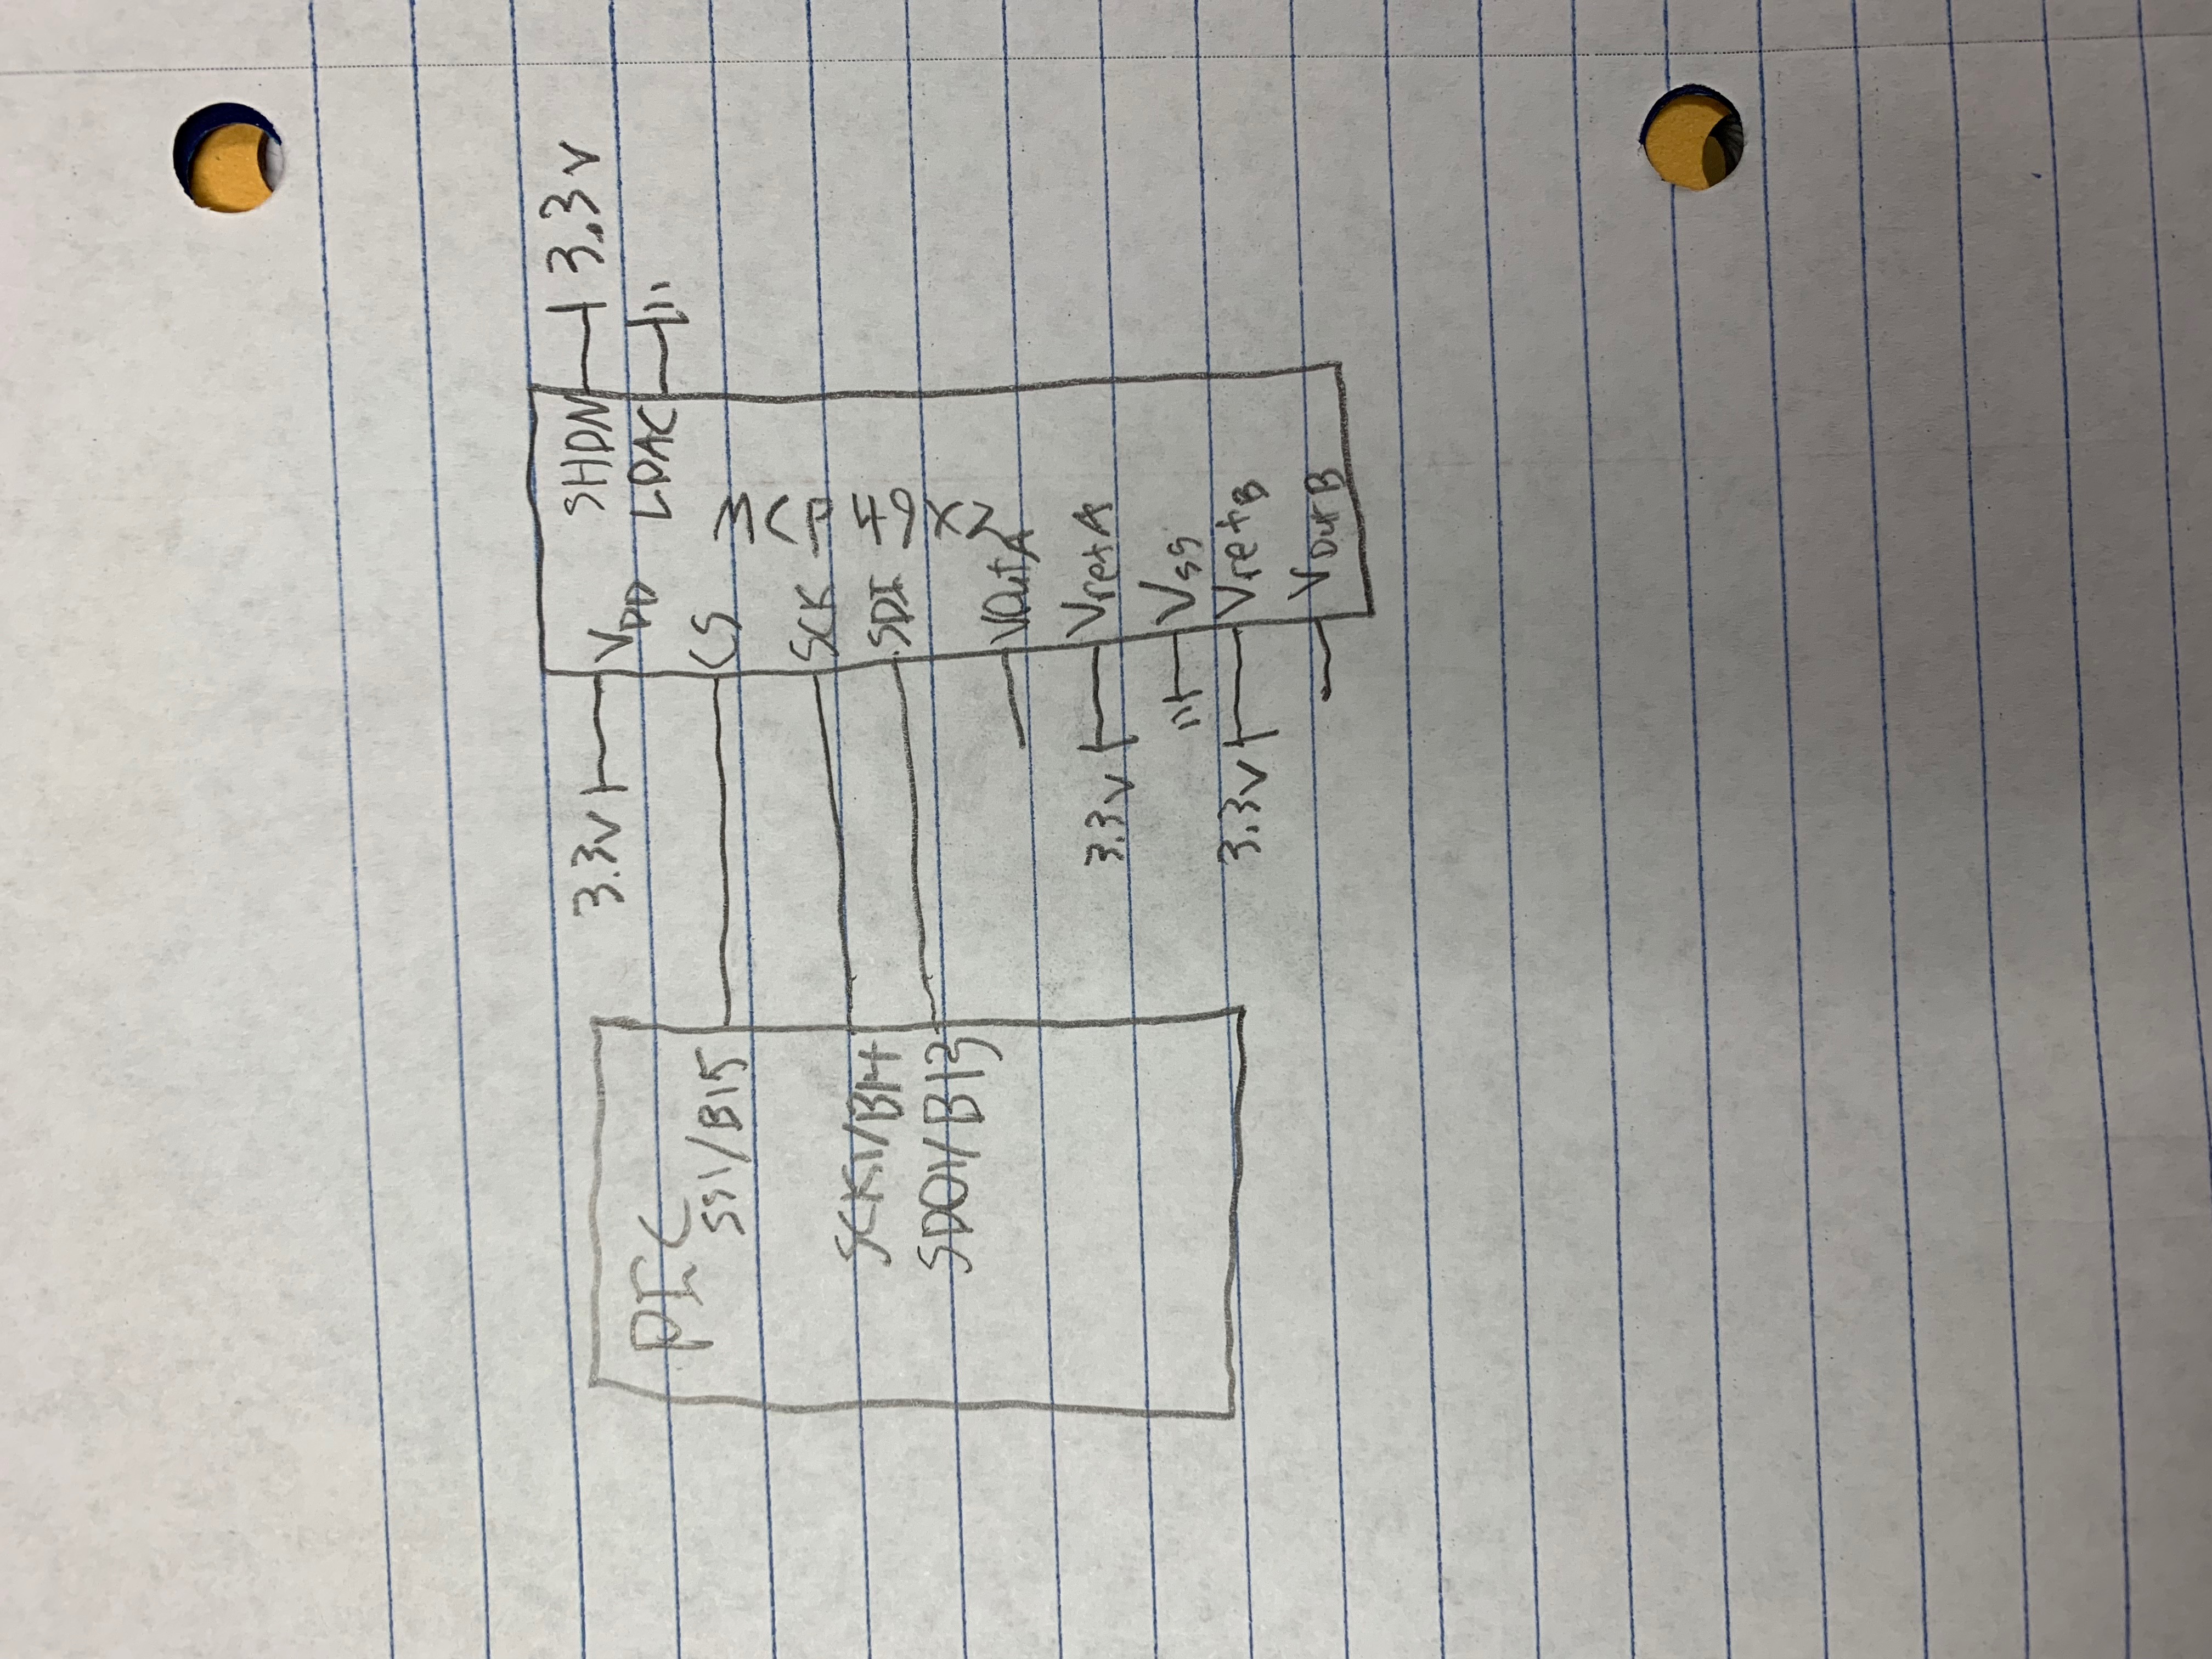 PIC
SS1/B15
SCK1/B14
SDO1/B13
3.3V
VDD
CS
SCK
SDI
VOutA
3.3V
VrefA
VSS
3.3V
VrefB
VOutB
SHDN
3.3V
LDAC
MCP49x2